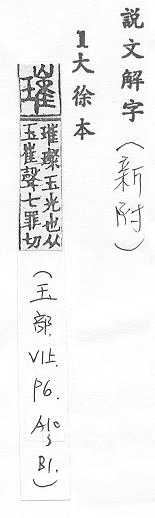 説文解字(新附)
1大徐本
璀
璀璨玉光也从
玉崔聲七罪切
(玉部. V1上. P6. A10~B1.)